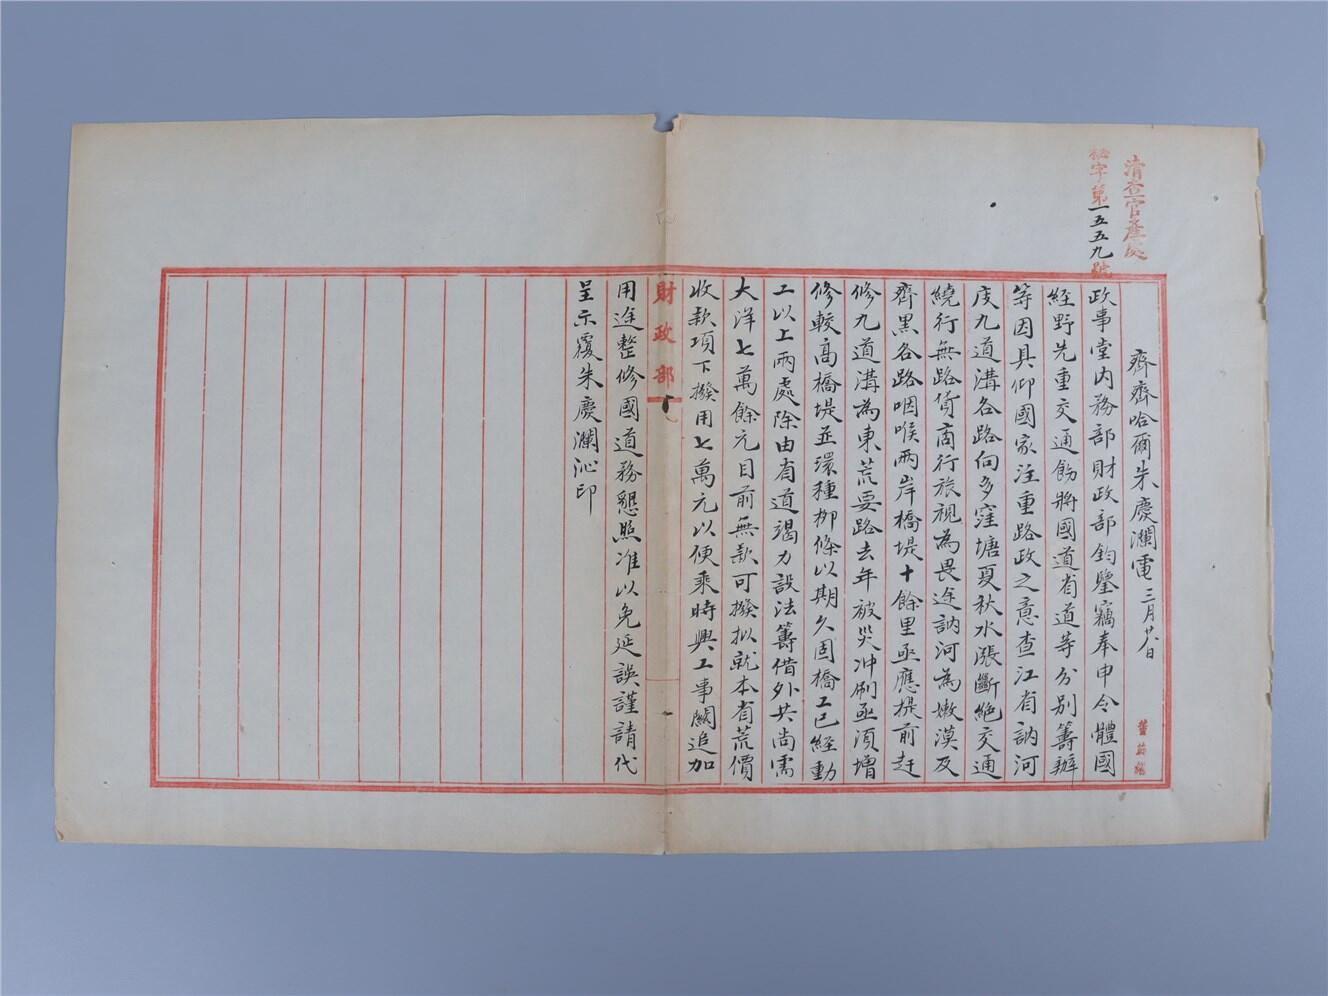 清查官產處
秘字第一五五九號
齊齊哈爾朱慶瀾電三月廿八日
政事堂內務部財政部鈞鑒竊奉申令體國
經野先重交通飭將國道省道等分別籌辦
等因具仰國家注重路政之意查江省訥河
度九道溝各路向多窪塘夏秋水漲斷絕交通
繞行無路貨商行旅視為畏途訥河為嫩漠及
齊黑各路咽喉兩岸橋堤十餘里亟應提前赶
修九道溝為東荒要路去年被災冲刷亟須增
修較高橋堤並環種柳條以期久固橋工已經動
工以上兩處除由省道竭力設法籌借外共尚需
大洋七萬餘元目前無款可撥擬就本省荒價
收款項下撥用七萬元以便乘時興工事關追加
財政部
用途整修國道務懇照准以免延誤謹請代
呈示覆朱慶瀾沁印